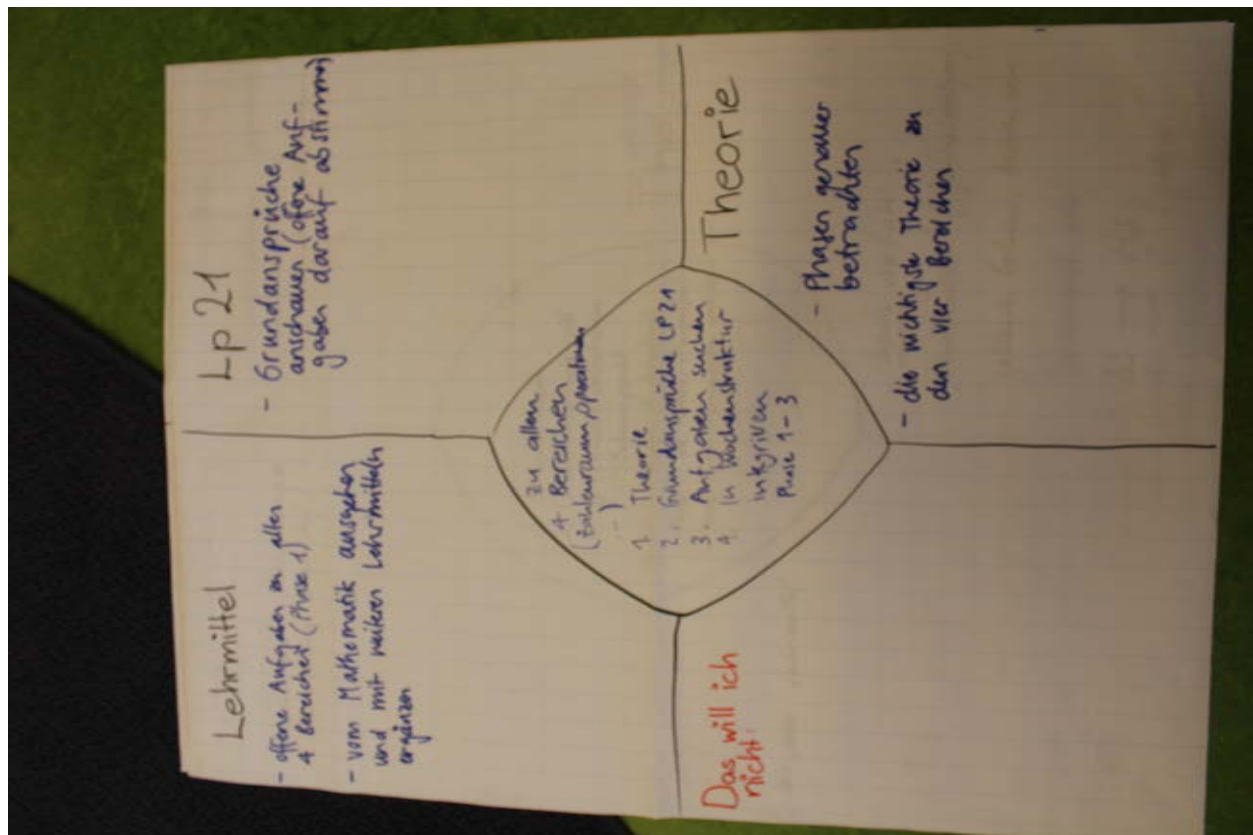 Lehrmittel
- offene Aufgaben zu allen
4 Bereichen (Phase 1)
- vom Mathematik ausgehen
und mit weiteren Lehrmitteln
ergänzen
Lp 21
- Grundansprüche
anschauen (offene Auf-
gaben darauf abstimmen)
zu allen
4 Bereichen
(Zahlenraum, Operationen
- )
1. Theorie
2. Grundansprüche LP21
3. Aufgaben suchen
4. In Wochenstruktur
integrieren
Phase 1-3
Das will ich
nicht:
Theorie
- Phasen genauer
betrachten
- die wichtigste Theorie zu
den vier Bereichen